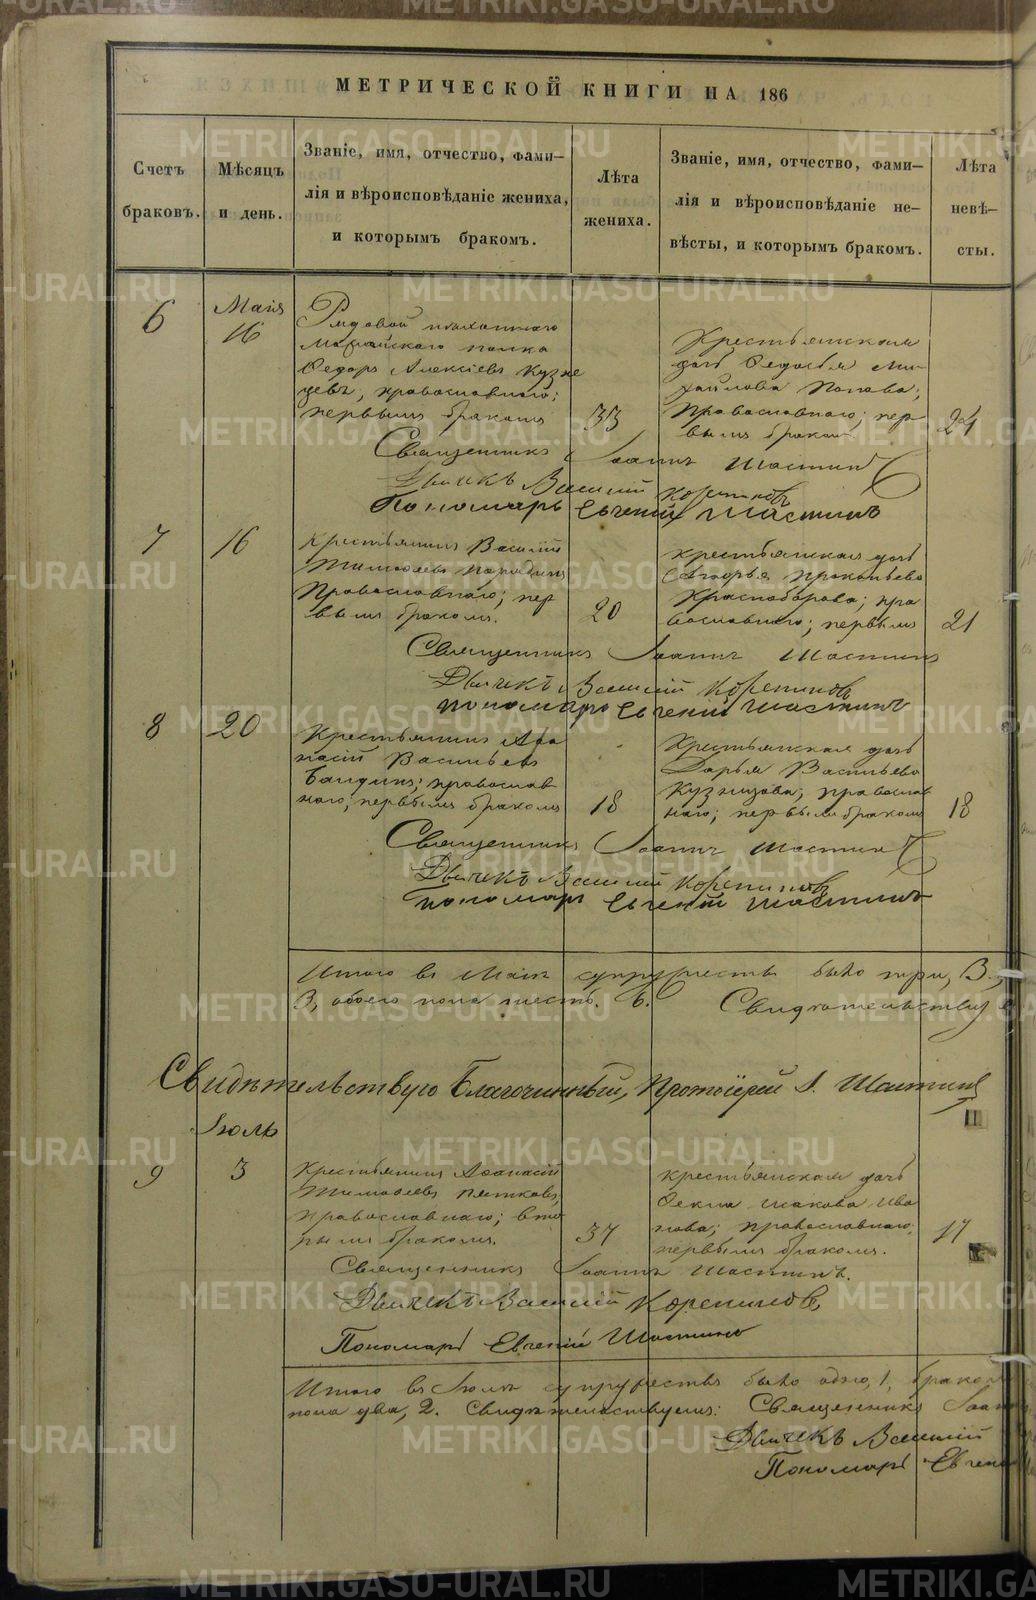 МЕТРИЧЕСКОЙ КНИГИ НА 186
Счетъ браковъ.
Мѣсяцъ и день.
Званіе, имя, отчество, фами-
лія и вѣроисповѣданіе жениха,
и которымъ бракомъ.
Лѣта жениха.
Званіе, имя, отчество, фами-
лія и вѣроисповѣданіе не-
вѣсты, и которымъ бракомъ.
Лѣта
невѣ-
сты.
6
Маія
16
Рядовой пѣхотнаго
полка
Ѳедоръ Алексіевъ Кузне
цевъ, православнаго;
первымъ бракомъ
33
Крестьянская
дочь Ѳедосья Ми-
хайлова Попова;
православнаго; пер
вымъ бракомъ
24
Священникъ Іоаннъ Шастинъ
Дьячекъ Василій Корепиновъ
Пономарь Евгеній Шастинъ
7
16
Крестьянинъ Василій
Тимоѳеевъ
Православнаго; пер
вымъ бракомъ.
20
Крестьянская дочь
Прокопьева
Красноборова; пра
вославнаго; первымъ
21
Священникъ Іоаннъ Шастинъ
Дьячекъ Василій Корепиновъ
Пономарь Евгеній Шастинъ
8
20
Крестьянинъ Аѳа
насій Васильевъ
православ
наго; первымъ бракомъ
18
Крестьянская дочь
Дарья Васильева
Кузнецова; православ
наго; первымъ бракомъ
18
Священникъ Іоаннъ Шастинъ
Дьячекъ Василій Корепиновъ
Пономарь Евгеній Шастинъ
Итого въ Маѣ супружествъ было три, 3,
3, обоего пола шесть. 6. Свидѣтельству
Свидѣтельствую Благочинный, Протоіерей І. Шастинъ
Іюль
9
3
Крестьянинъ Аѳанасій
Тимоѳеевъ Пятковъ,
православнаго; вто
рымъ бракомъ.
37
Крестьянская дочь
Ѳекла Іакова Ива
нова; православнаго;
первымъ бракомъ.
17
Священникъ Іоаннъ Шастинъ.
Дьячекъ Василій Корепиновъ,
Пономарь Евгеній Шастинъ
Итого въ Іюлѣ супружествъ было одно, 1,
пола два, 2. Свидѣтельствуемъ: Священникъ Іоаннъ
Дьячекъ Василій
Пономарь Евгені
METRIKI.GASO-URAL.RU